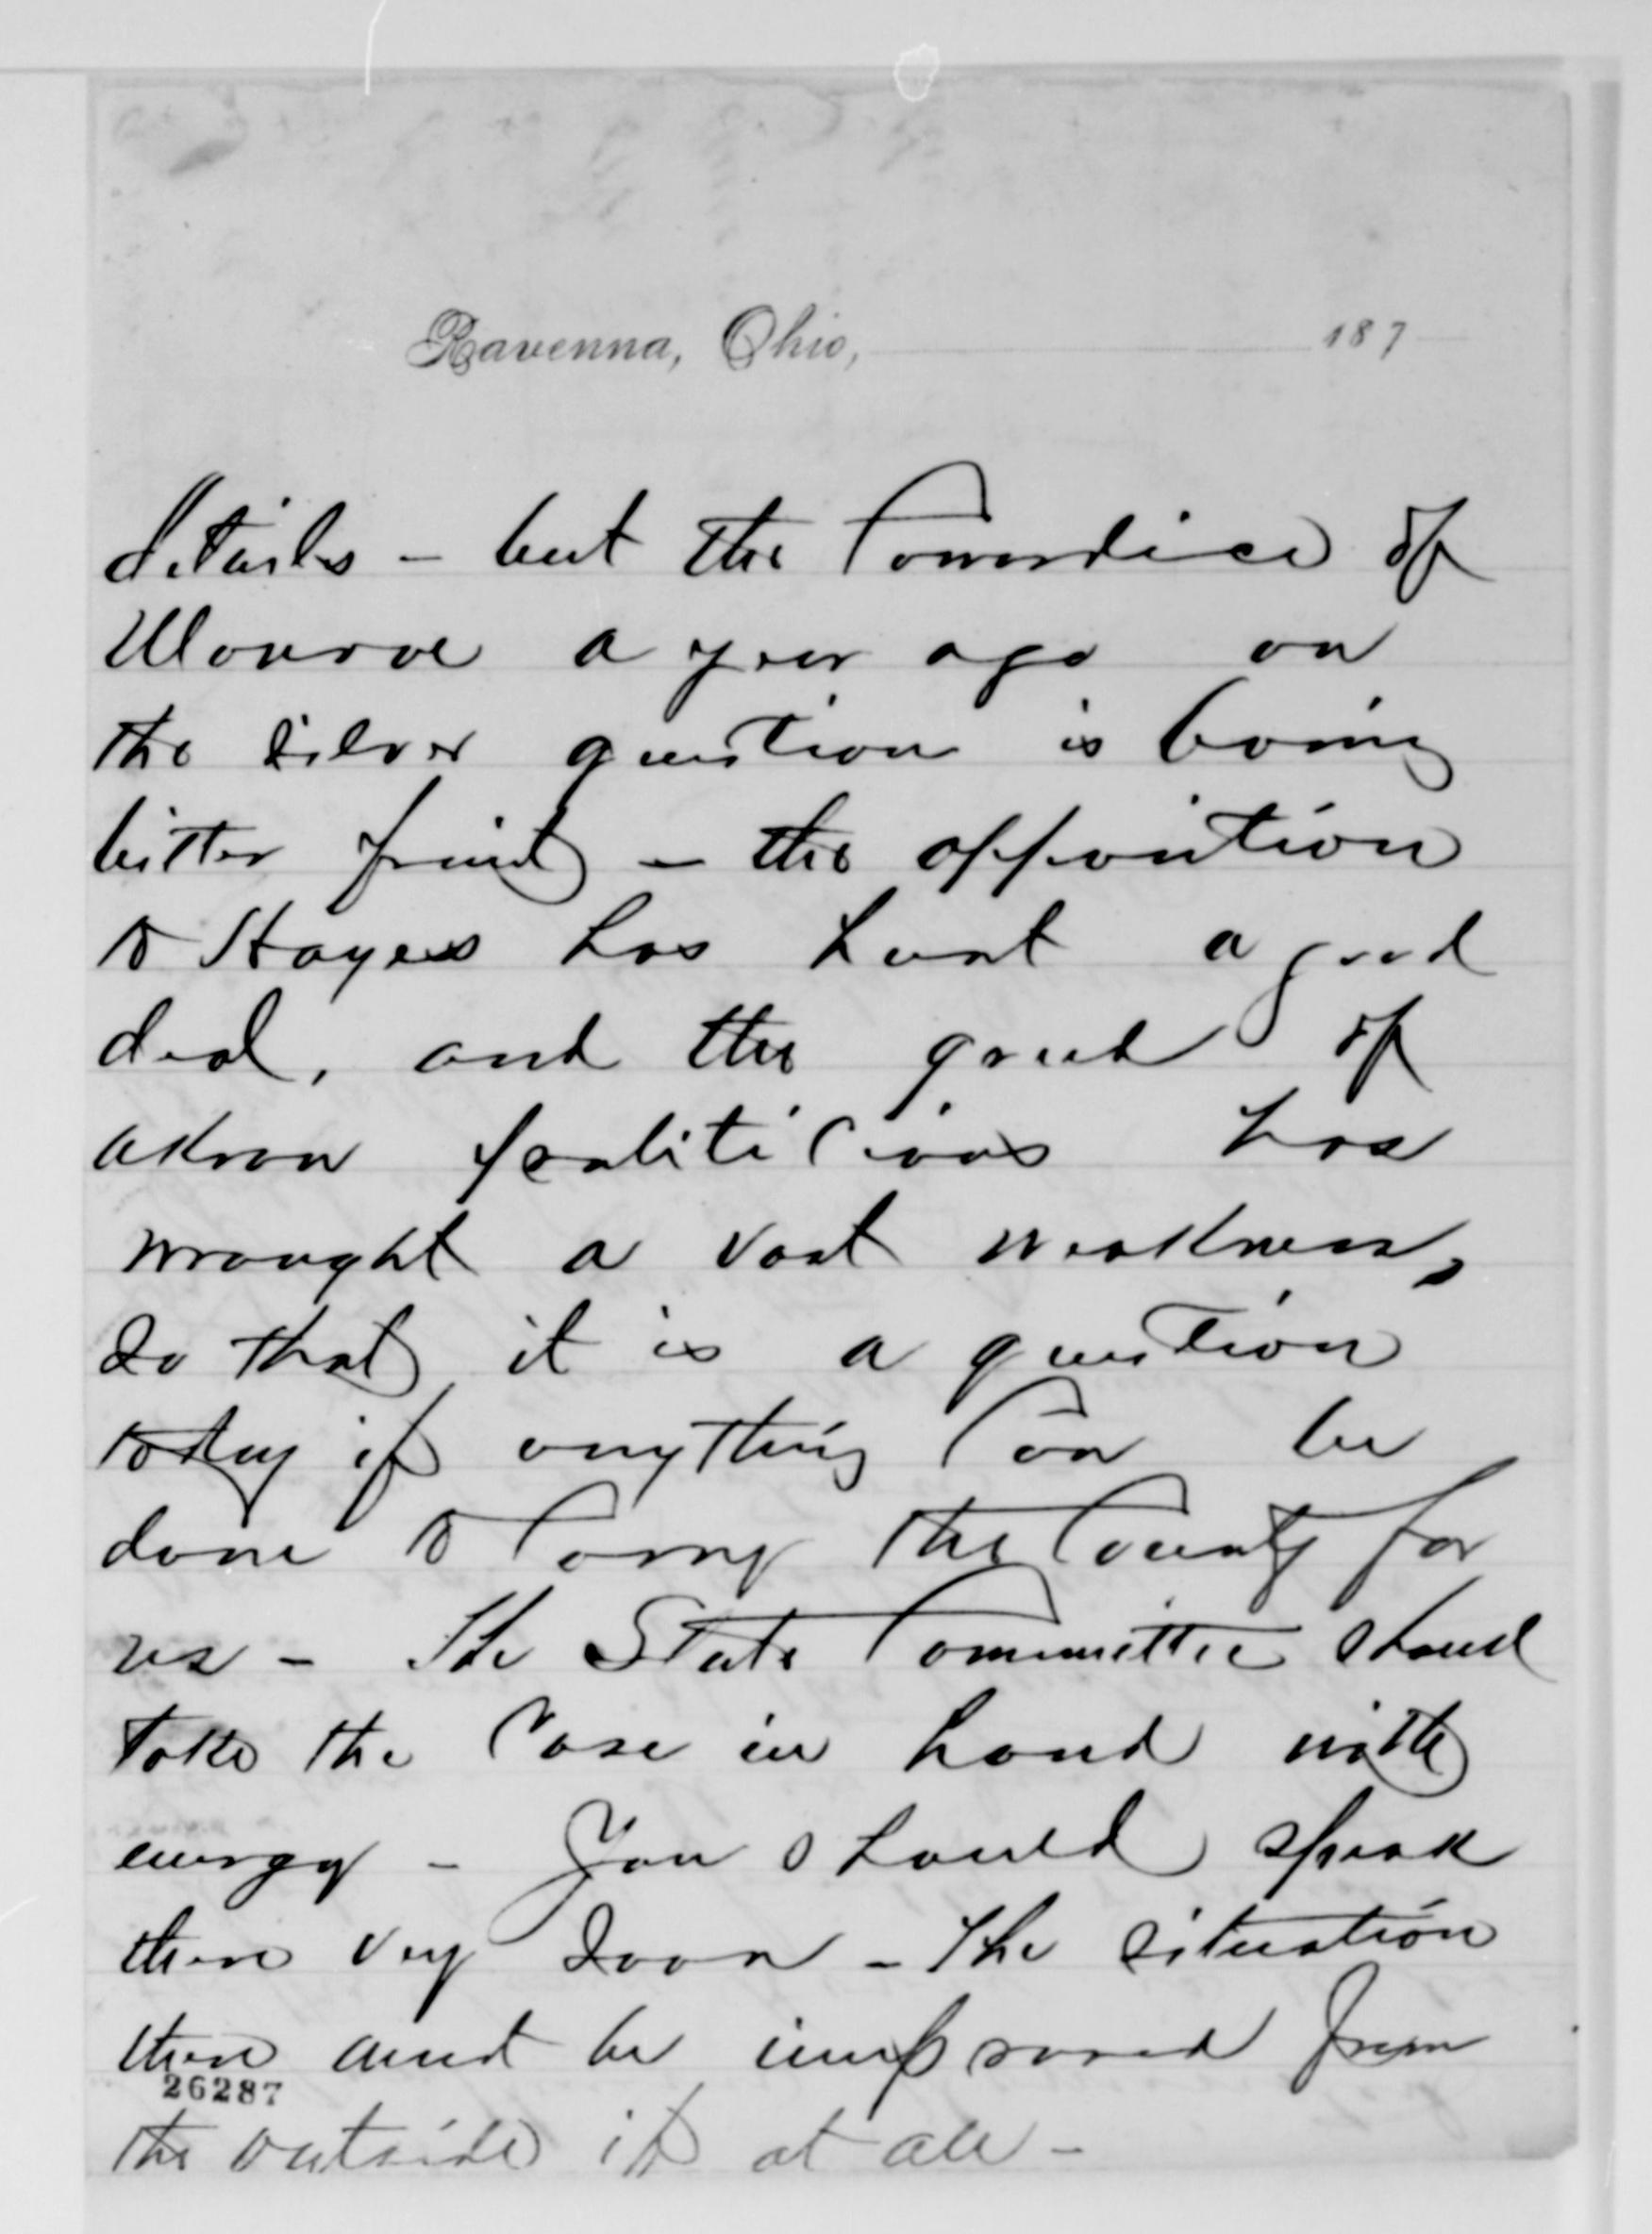 Ravenna, Ohio, 187
details - but the Cowardice of
Monroe a year ago on
the silver question is boring
bitter fruit - the opposition
to Hayes has hurt a good
deal, and the greed of
Akron politicians has
wrought a vast weakness,
So that it is a question
today if anything Can be
done to Carry the County for
us - The State Committee should
take the Case in hand with
energy - You should speak
there very soon - The situation
there must be improved from
26287
the outside if at all -